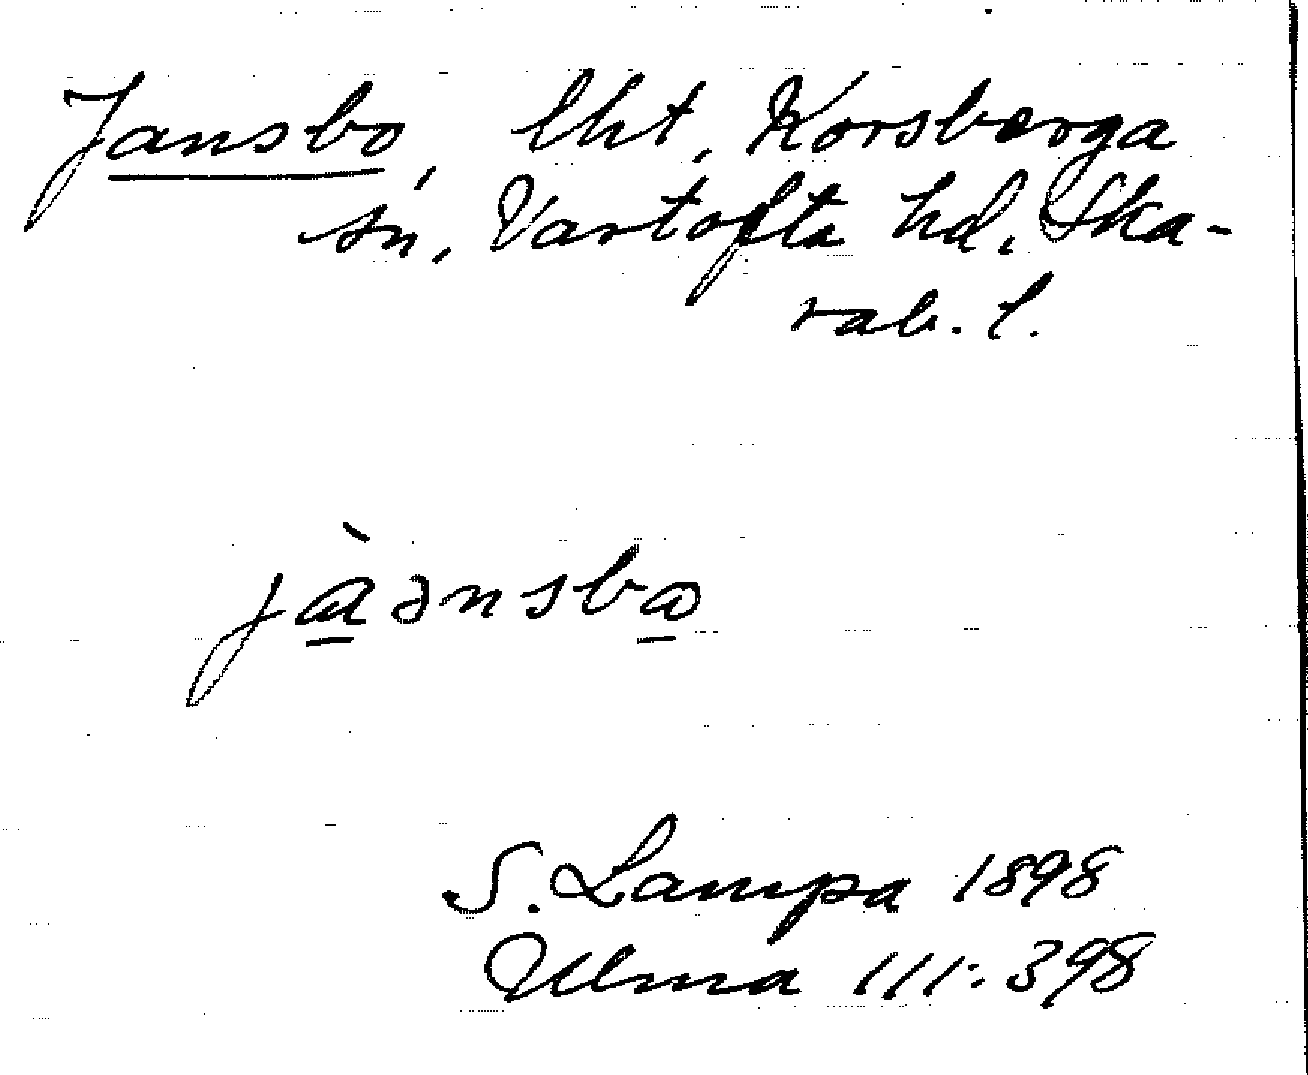 Jansbo, lht, Korsberga
sn, Vartofta hd. Ska-
rab. l.
jàənsbo
S. Lampa 1898
Ulma 111:398